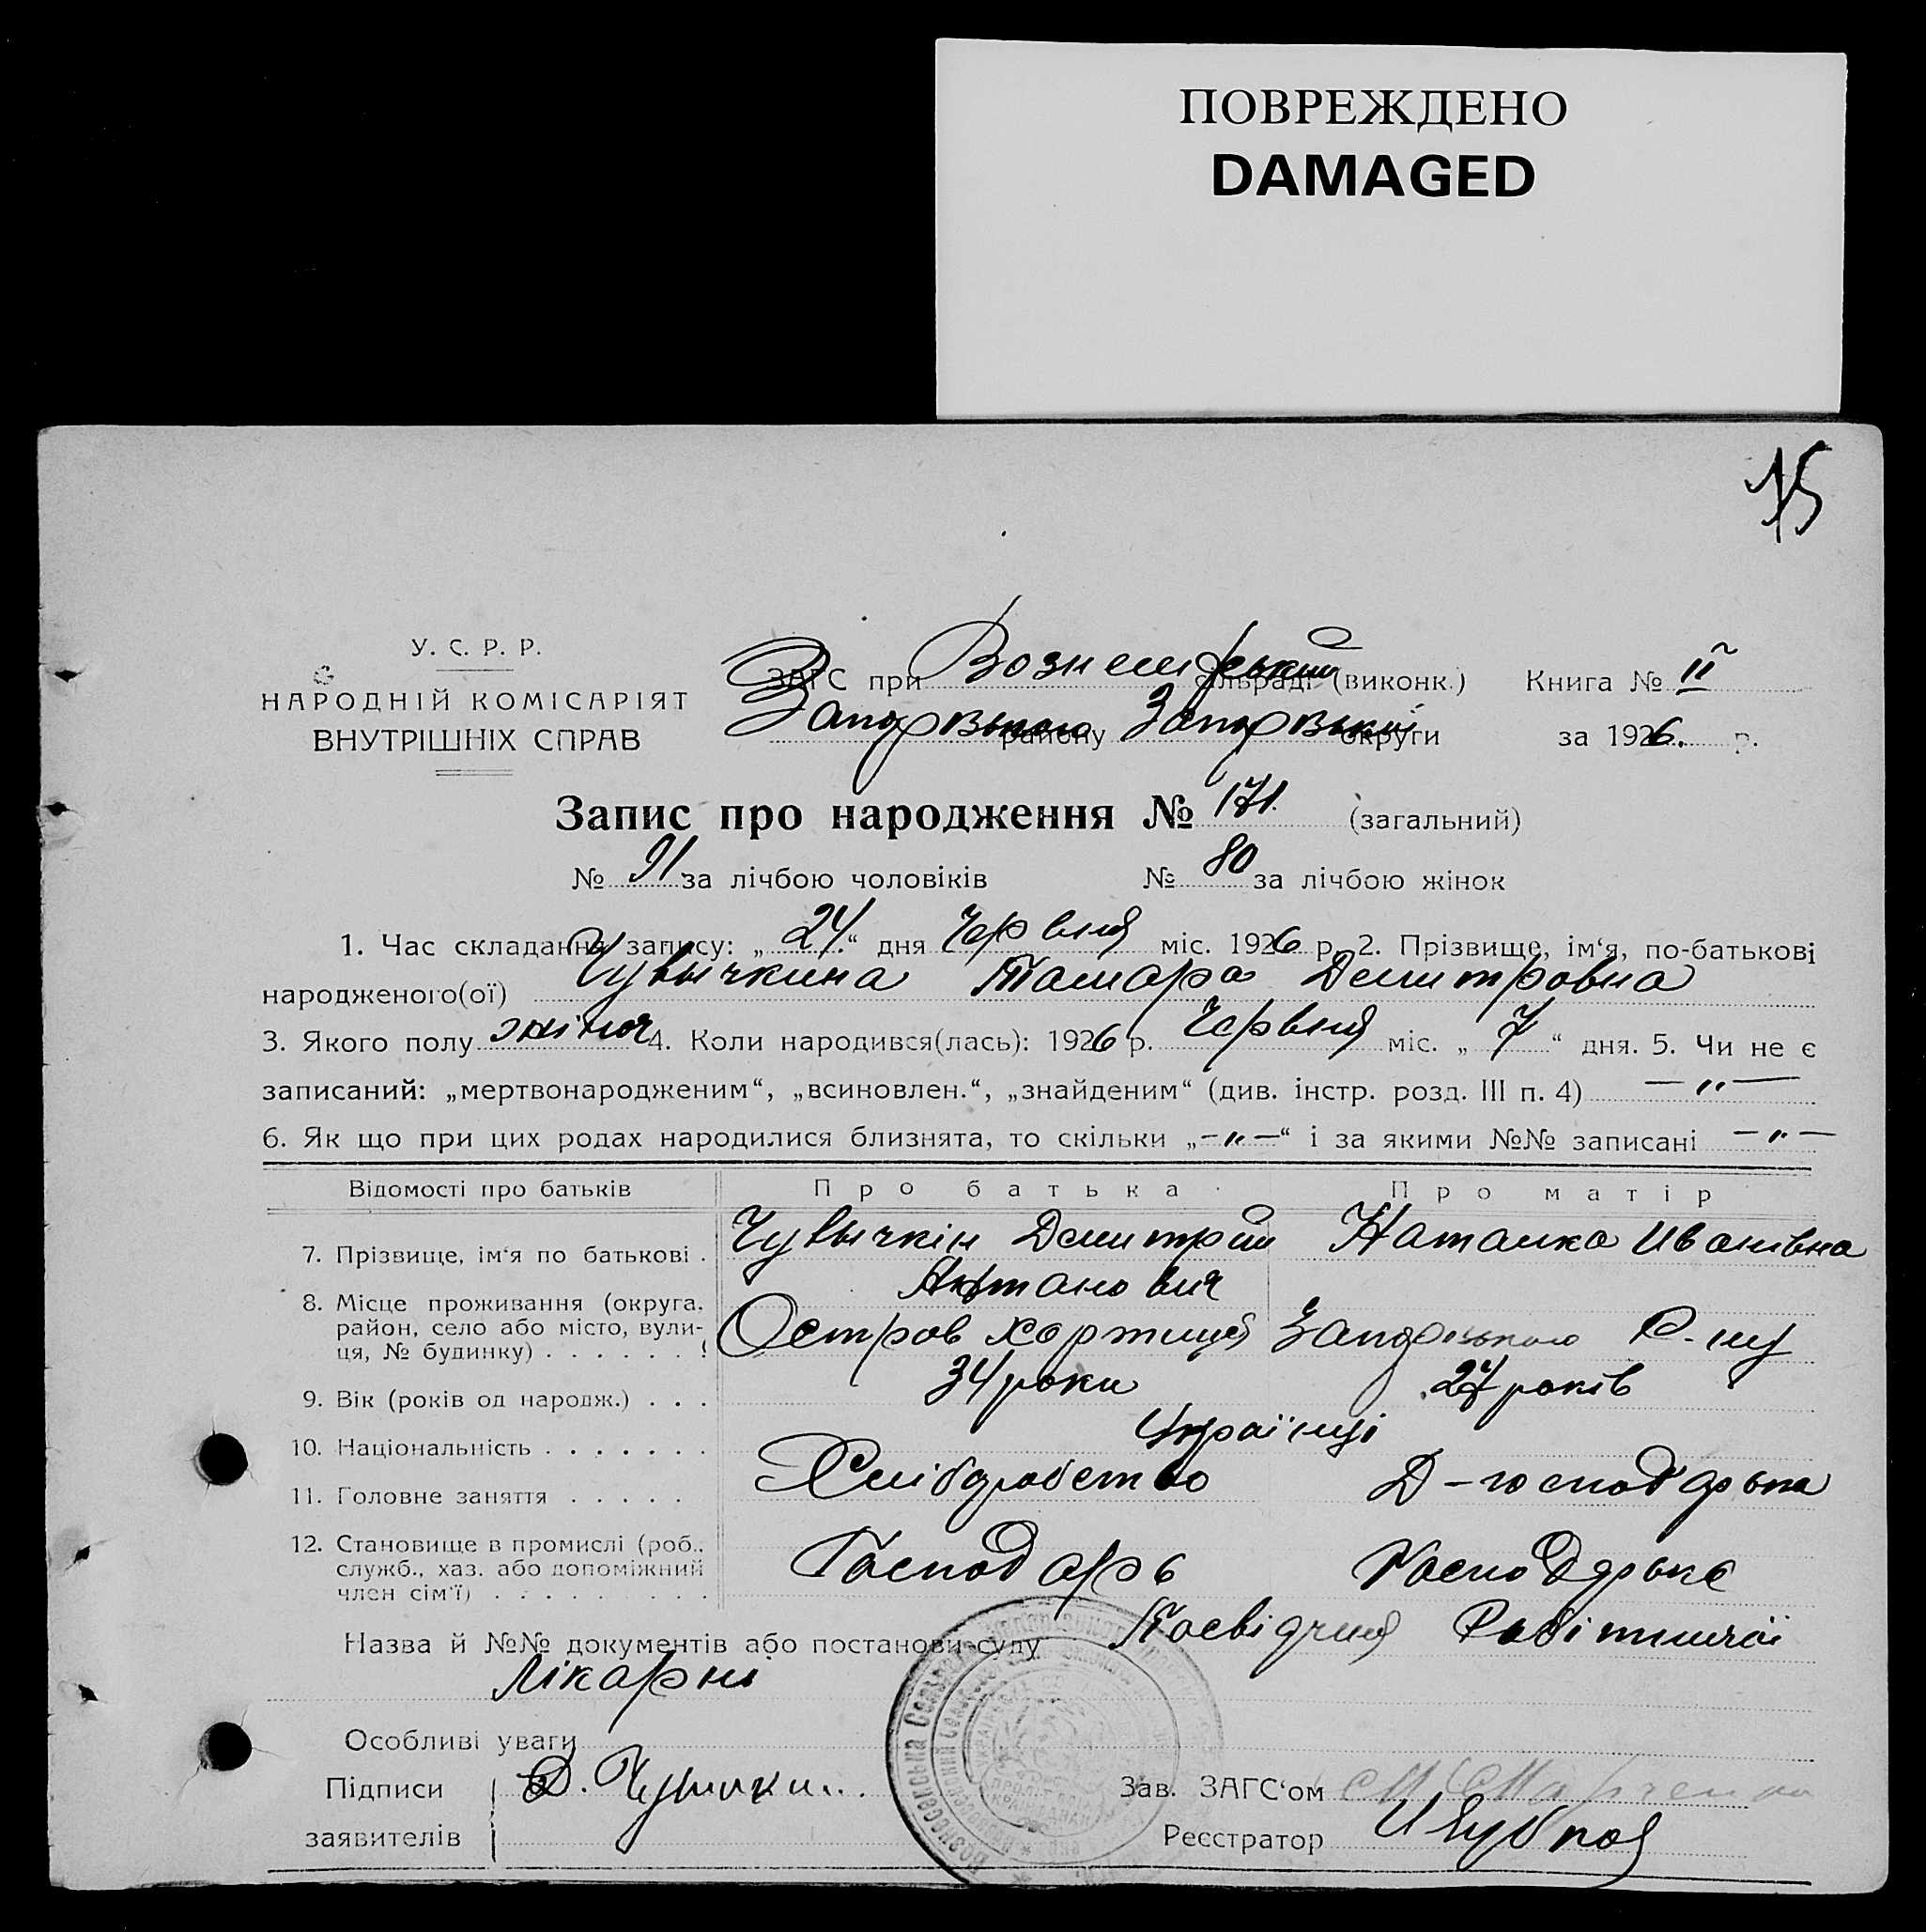 ПОВРЕЖДЕНО
DAMAGED
15
У. С. Р. Р.
НАРОДНІЙ КОМІСАРІЯТ
ВНУТРІШНІХ СПРАВ
ЗАГС при сільраді (виконк.) Книга № II
району округи за 1926. р.
Запис про народження № 171. (загальний)
№ 91 за лічбою чоловіків № 80 за лічбою жінок
1. Час складання запису: „24“ дня Червня міс. 1926 р. 2. Прізвище, ім‘я, по-батькові
народженого(ої) Чувычкина Тамара Демитровна
3. Якого полу жіноч 4. Коли народився(лась): 1926 р. Червня міс. „7“ дня. 5. Чи не є
записаний: „мертвонародженим“, „всиновлен.“, „знайденим“ (див. інстр. розд. III п. 4) —„—
6. Як що при цих родах народилися близнята, то скільки „—„—“ і за якими №№ записані —„—
Відомості про батьків Про батька Про матір
7. Прізвище, ім‘я по батькові . Чувычкін Демитрий Наталка Иванівна
8. Місце проживання (округа,
район, село або місто, вули-
ця, № будинку) . . . . . . Остров Хортиця Р-ну
9. Вік (років од народж.) . . . 34 роки 27 років
10. Національність . . . . . . . Українці
11. Головне заняття . . . . . Хліборобство Д-господарька
12. Становище в промислі (роб.,
служб., хаз. або допоміжний
член сім‘ї) . . . . . . . . . Господарь Господарька
Назва й №№ документів або постанови суду Посвідчня Робітничої
Лікарні
Особливі уваги
Підписи Д.
заявителів
Зав. ЗАГС‘ом
Реєстратор